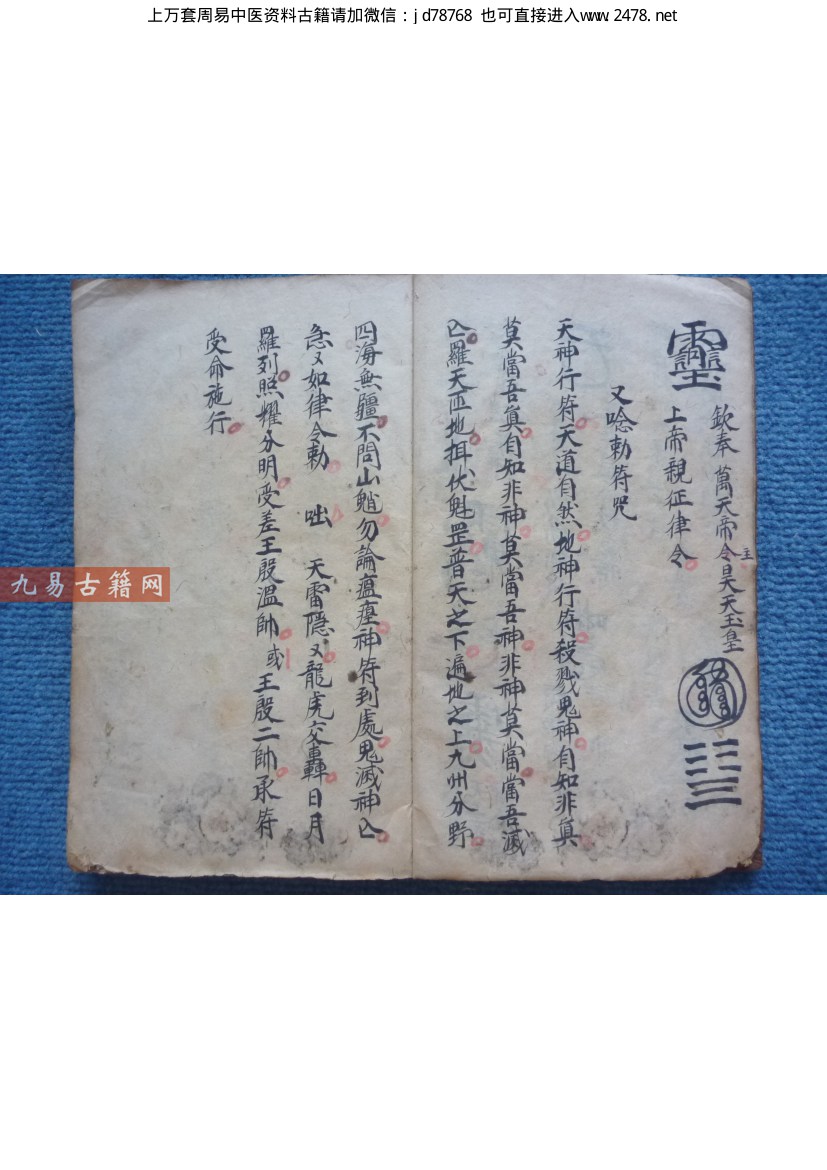 上万套周易中医资料古籍请加微信：jd78768 也可直接进入www.2478.net
靈
欽奉萬天帝主令昊天玉皇
上帝親征律令
又唸勅符咒
天神行符天道自然地神行符殺戮鬼神自知非真
莫當吾真自知非神莫當吾神非神莫當當吾滅
亾羅天匝地揖伏魁罡普天之下遍地之上九州分野
四海無疆不問山魈勿論瘟𤺄神符到處鬼滅神亾
急又如律令勅 咄 天雷隱又龍虎交轟日月
羅列照耀分明受差王殷溫帥或王殷二帥承符
受命施行
九易古籍网